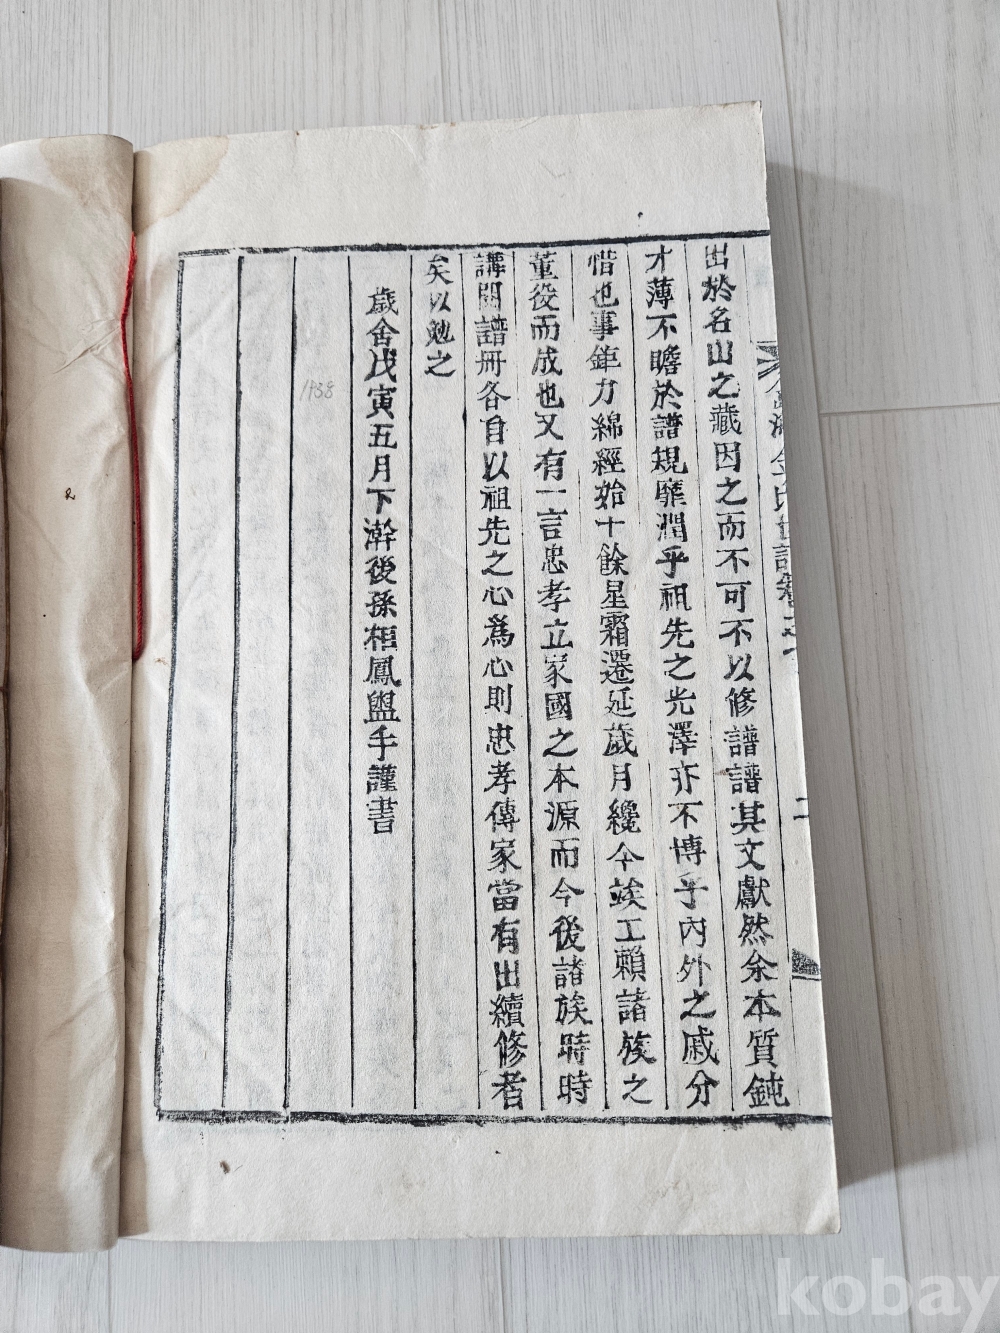 出於名山之藏因之而不可不以修譜譜其文獻然余本質鈍
才薄不贍於譜規靡潤乎祖先之光澤亦不博乎內外之戚分
惜也事鉅力綿經始十餘星霜遷延歲月纔今竢工賴諸族之
董役而成也又有一言忠孝立家國之本源而今後諸族時時
講閱譜冊各自以祖先之心爲心則忠孝傳家當有出續修者
矣以勉之
歲舍戊寅五月下澣後孫相鳳盥手謹書
1938
kobay